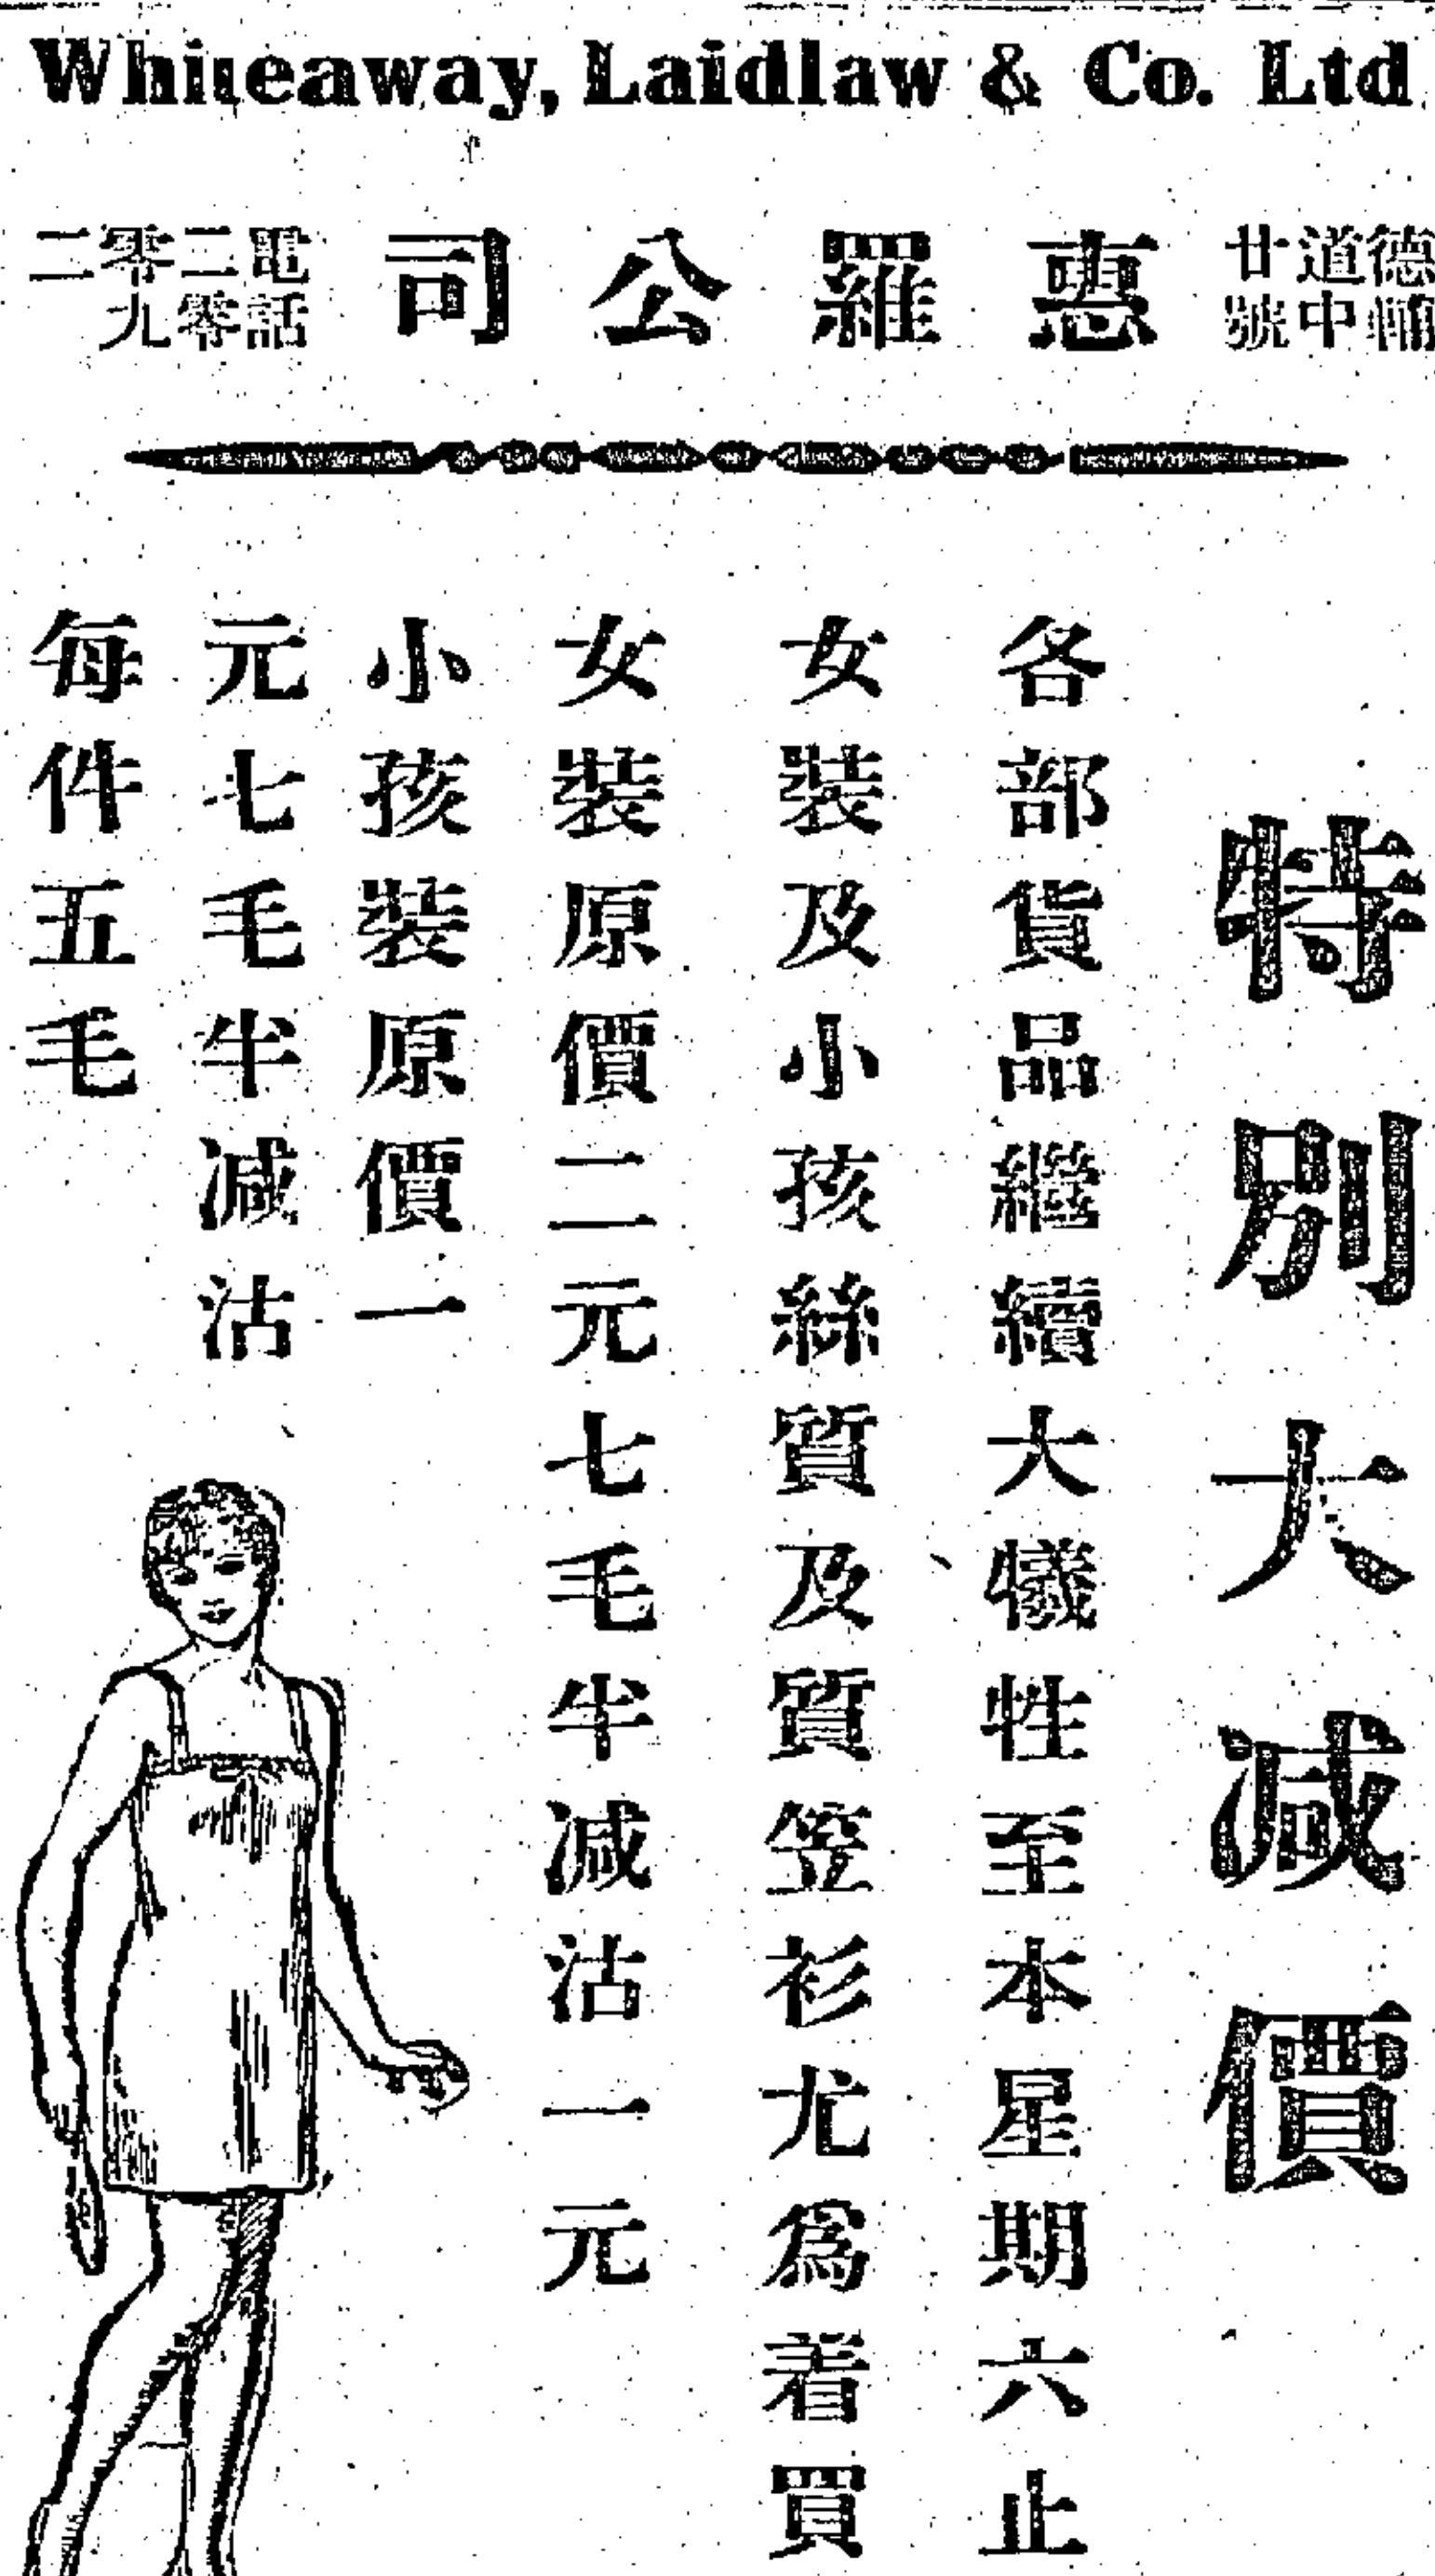 Whiteaway, Laidlaw & Co. Ltd.
德輔道中廿號
惠羅公司
電話二零零九二
特別大減價
各部貨品繼續大犧牲至本星期六止
女裝及小孩絲質及質笠衫尤為着買
女裝原價二元七毛半減沽一元
小孩裝原價一
元七毛半減沽
每件五毛